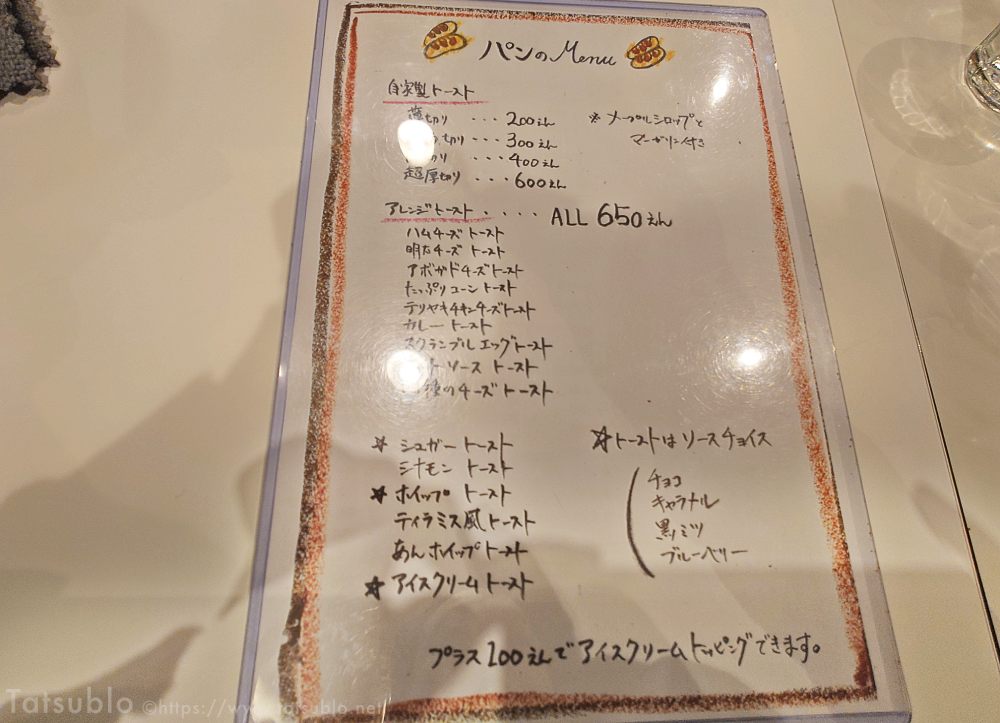 パンのMenu
自家製トースト
薄切り ・・・200えん
切り ・・・300えん
切り ・・・400えん
超厚切り ・・・600えん
※メープルシロップと
マーガリン付き
アレンジトースト・・・・ALL 650えん
ハムチーズトースト
明太チーズトースト
アボガドチーズトースト
たっぷりコーントースト
テリヤキチキンチーズトースト
カレートースト
スクランブルエッグトースト
ソーストースト
種のチーズトースト
☆シュガートースト
シナモントースト
☆ホイップトースト
ティラミス風トースト
あんホイップトースト
☆アイスクリームトースト
☆トーストはソースチョイス
チョコ
キャラメル
黒ミツ
ブルーベリー
プラス100えんでアイスクリームトッピングできます。
Tatsublo ©https://www.tatsublo.net